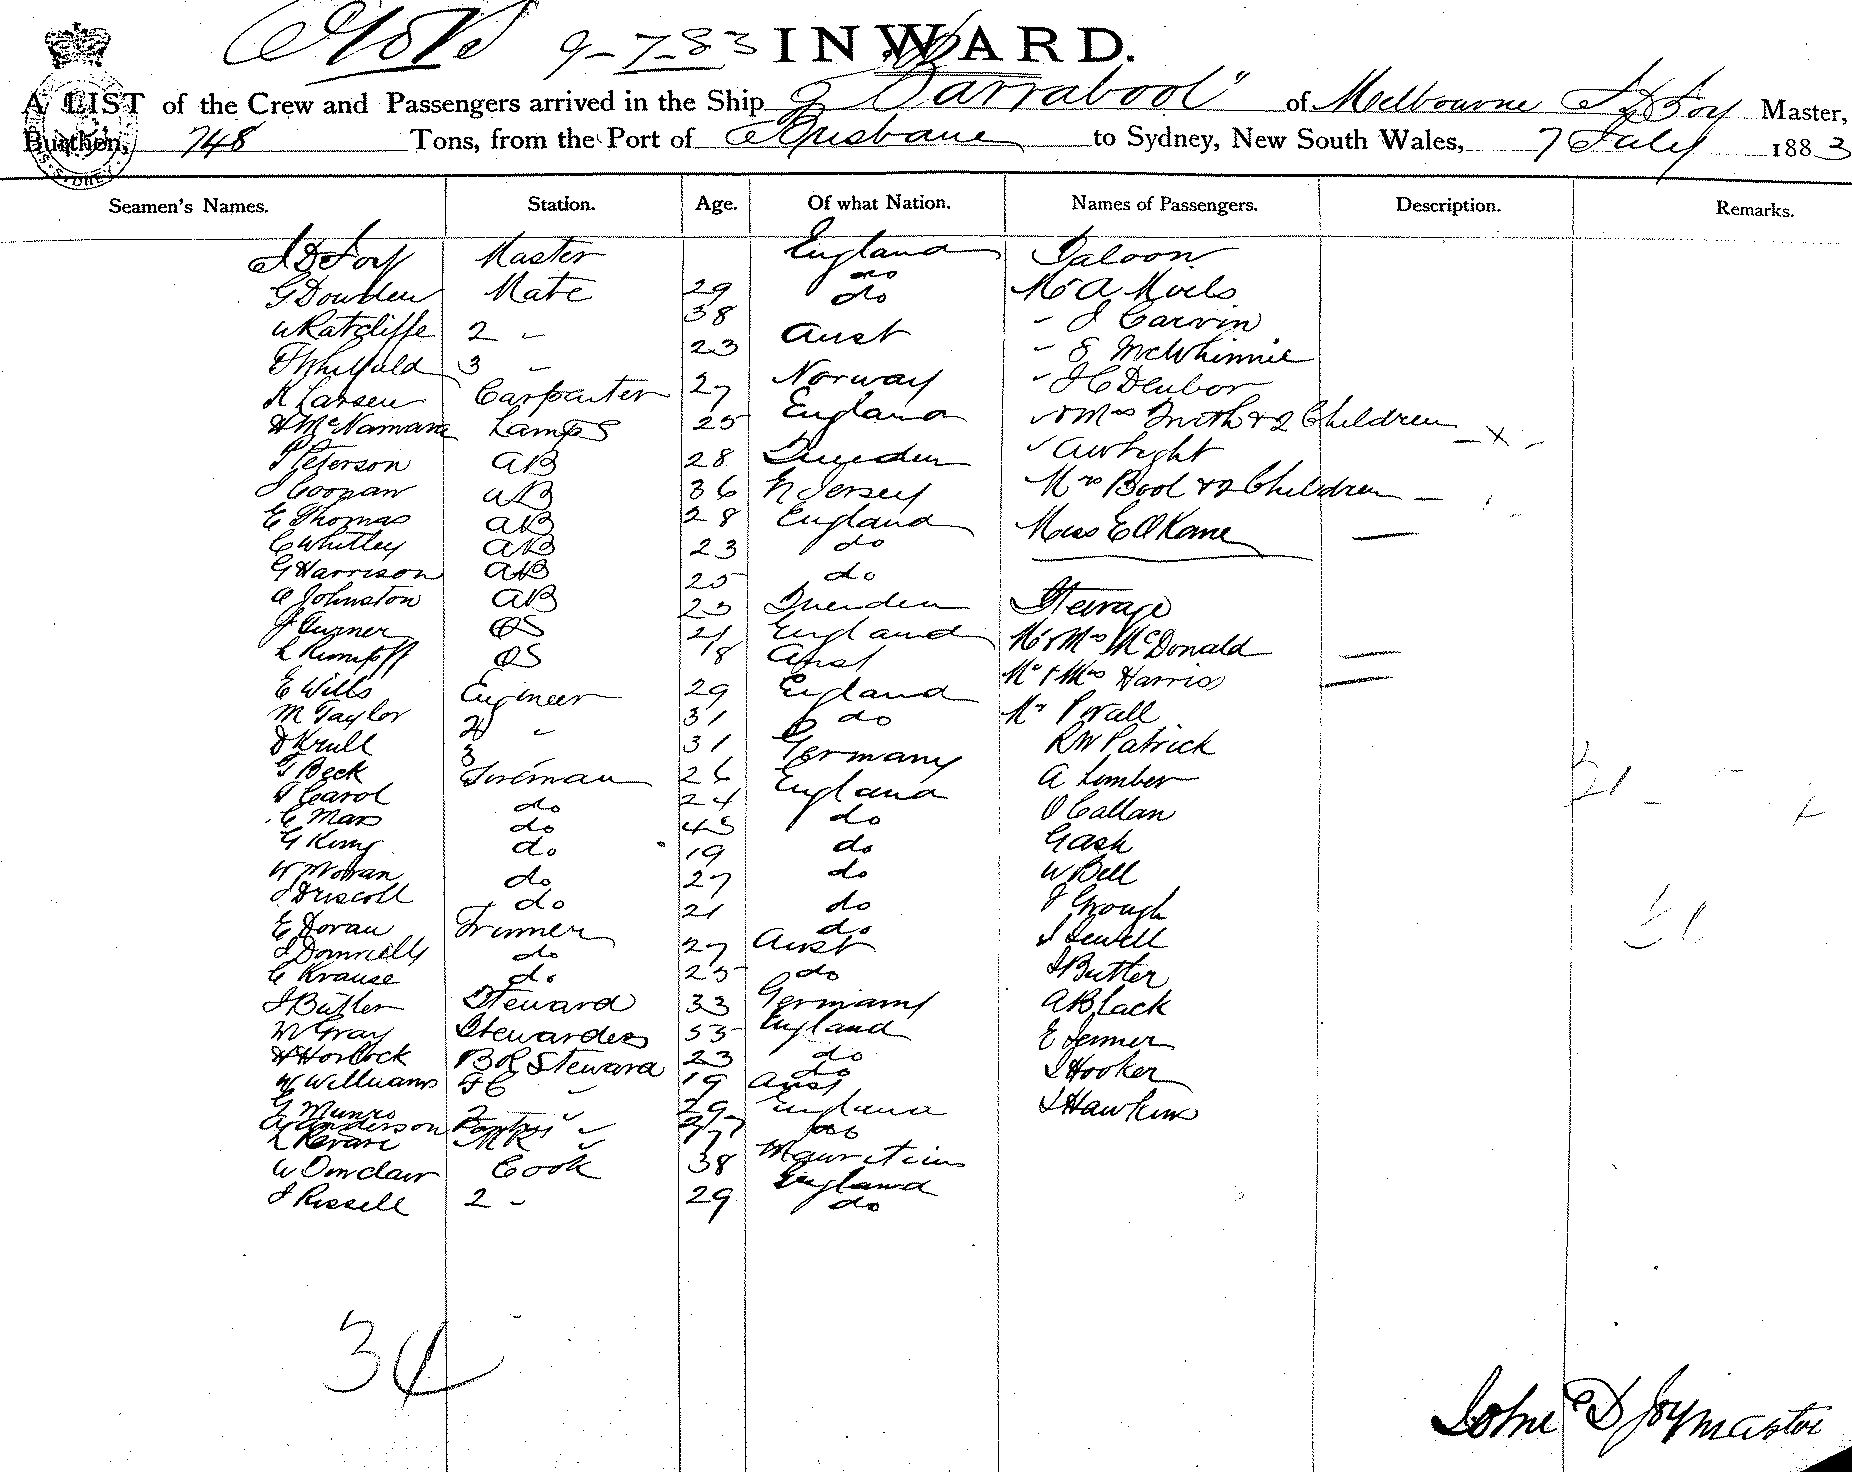 9-7-83 INWARD.
A LIST of the Crew and Passengers arrived in the Ship "Barrabool" of Melbourne J D Foy Master,
Burthen, 748 Tons, from the Port of Brisbane to Sydney, New South Wales, 7 July 1883
Seamen's Names. Station. Age. Of what Nation. Names of Passengers. Description. Remarks.
J D Foy Master England Saloon
do
G Dowden Mate 29 do Mr A Moils
W Ratcliffe 2 " 38 Aust " J Garvin
3 " 23 " S McWhinnie
K Larsen Carpenter 27 Norway " J C Deubor
H McNamara Lamps 25 England " & Mrs Smith & 2 Children
P Peterson AB 28 Sweden " Awright
J Coonan AB 36 N Jersey Mrs Bool & 2 Children
E Thomas AB 28 England Miss E O Kane
C Whitley AB 23 do
G Harrison AB 25 do
A Johnston AB 23 Sweden Steerage
J Turner OS 21 England Mr & Mrs McDonald
L Kumpff OS 18 Aust Mr & Mrs Harris
E Wills Engineer 29 England Mr P Wall
M Taylor 2 " 31 do R W Patrick
J Krull 3 31 Germany A Limber
T Beck Fireman 26 England O Callan
T Carol do 24 do Gash
C Mars do 45 do W Bell
G King do 19 do J Grough
W Moran do 27 do J Sewell
J Driscoll do 21 do J Butler
E Doran Trimmer 27 Aust A Black
J Donnelly do 25 do E Jenner
C Krause do 33 Germany J Hooker
J Butler Steward 55 England J Hawkins
M Gray Stewardess 23 do
H Horlock B R Steward 19 do
W Williams F C " Aust
G Munro 2 " 29 England
A Anderson Pantry " 27 do
L
W Sinclair Cook 38 Mauritius
England
J Rissell 2 " 29 do
34
John D Foy Master